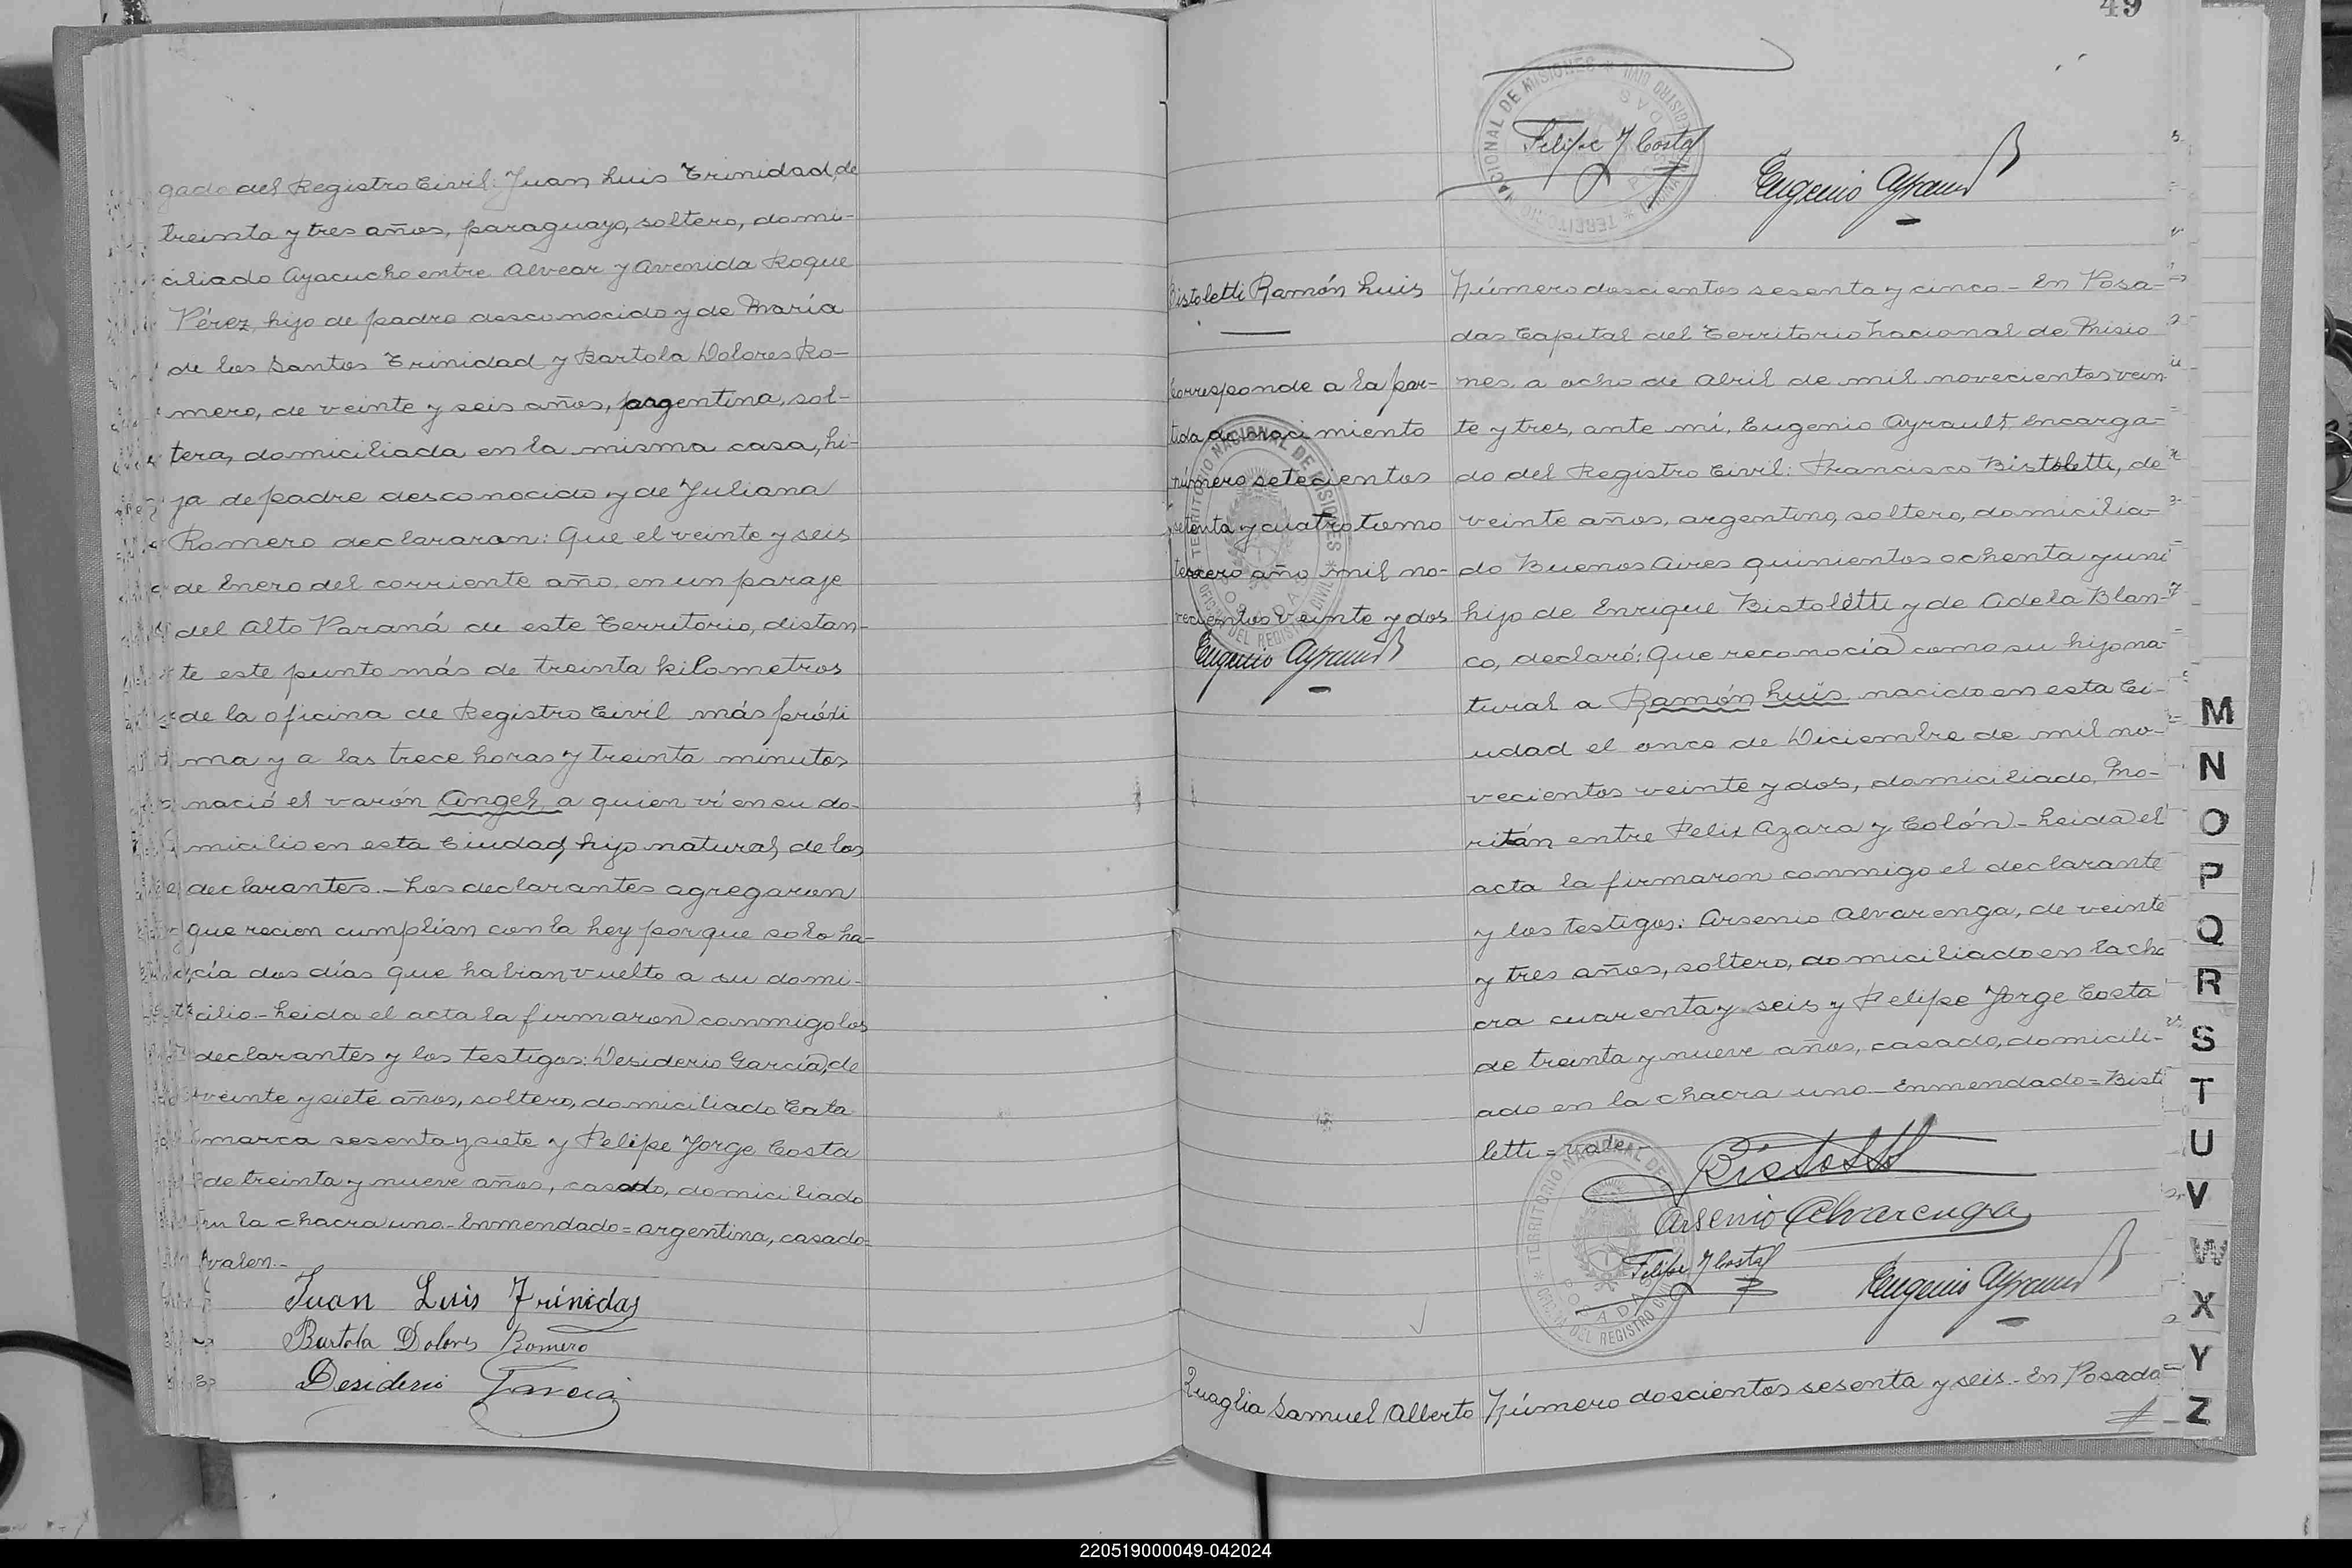 gado del Registro Civil: Juan Luis Trinidad, de
treinta y tres años, paraguayo, soltero, domi-
ciliado Ayacucho entre Alvear y Avenida Roque
Pérez, hijo de padre desconocido y de María
de los Santos Trinidad y Bartola Dolores Ro-
mero, de veinte y seis años, argentina, sol-
tera, domiciliada en la misma casa, hi-
ja de padre desconocido y de Juliana
Romero declararon: Que el veinte y seis
de Enero del corriente año, en un paraje
del Alto Paraná de este Territorio, distan-
te este punto más de treinta kilometros
de la oficina de Registro Civil más próxi
ma y a las trece horas y treinta minutos
nació el varón Angel, a quien ví en su do-
micilio en esta Ciudad, hijo natural de los
declarantes.- Los declarantes agregaron
que recien cumplían con la Ley porque solo ha-
cía dos días que habian vuelto a su domi-
cilio.- Leida el acta la firmaron conmigo los
declarantes y los testigos: Desiderio García, de
veinte y siete años, soltero, domiciliado Cata
marca sesenta y siete y Felipe Jorge Costa
de treinta y nueve años, casado, domiciliado
en la chacra uno.- Enmendado = argentina, casado =
valen.-
Juan Luis Trinidad
Bartola Dolores Romero
Desiderio Garcia
49
TERRITORIO NACIONAL DE MISIONES
Felipe J Costa
Eugenio Ayrault
Bistoletti Ramón Luis
Corresponde a la par-
tida de nacimiento
número setecientos
setenta y cuatro tomo
tercero año mil no-
vecientos veinte y dos
Eugenio Ayrault
TERRITORIO NACIONAL DE MISIONES
OFICINA DEL REGISTRO CIVIL
POSADAS
Número doscientos sesenta y cinco - En Posa-
das Capital del Territorio Nacional de Misio
nes, a ocho de Abril de mil novecientos vein
te y tres, ante mí, Eugenio Ayrault Encarga-
do del Registro Civil: Francisco Bistoletti, de
veinte años, argentino, soltero, domicilia-
do Buenos Aires quinientos ochenta y uno
hijo de Enrique Bistoletti y de Adela Blan-
co, declaró: Que reconocía como su hijo na-
tural a Ramón Luis nacido en esta Ci-
udad el once de Diciembre de mil no-
vecientos veinte y dos, domiciliado, Mo-
ritán entre Felix Azara y Colón - Leida el
acta la firmaron conmigo el declarante
y los testigos: Arsenio Alvarenga, de veinte
y tres años, soltero, domiciliado en la cha
cra cuarenta y seis y Felipe Jorge Costa
de treinta y nueve años, casado, domicili-
ado en la chacra uno - Enmendado = Bisto
letti = vale -
Bistoletti
Arsenio Alvarenga
Felipe J Costa
Eugenio Ayrault
TERRITORIO NACIONAL DE MISIONES
OFICINA DEL REGISTRO CIVIL
POSADAS
Quaglia Samuel Alberto
Número doscientos sesenta y seis - En Posada
M
N
O
P
Q
R
S
T
U
V
W
X
Y
Z
220519000049-042024